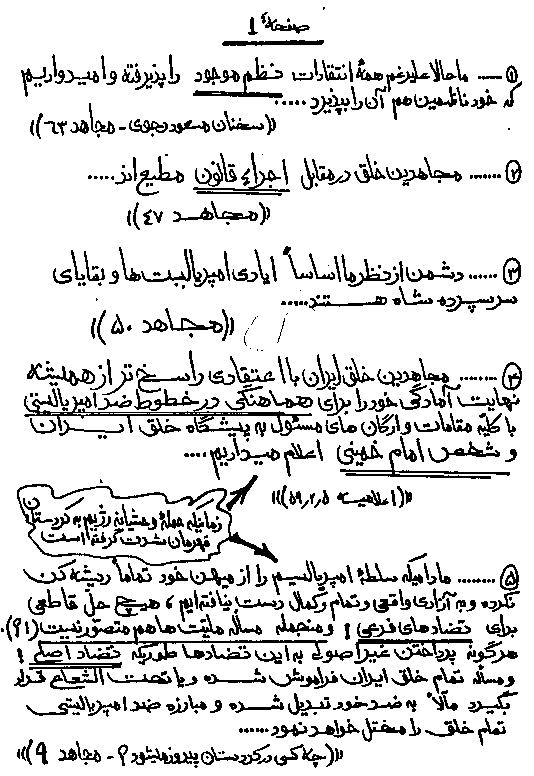 صفحهٔ 1
① ..... ما حالا علیرغم همهٔ انتقادات نظم موجود را پذیرفته و امیدواریم
که خود ناظمین هم آن را بپذیرد .....
((سخنان مسعود رجوی - مجاهد ۶۳))
② ...... مجاهدین خلق در مقابل اجراء قانون مطیع اند .....
((مجاهد ۴۷))
③ ...... دشمن از نظر ما اساساً ایادی امپریالیست ها و بقایای
سرسپرده شاه هستند .....
((مجاهد ۵۰))
④ ....... مجاهدین خلق ایران با اعتقادی راسخ تر از همیشه
نهایت آمادگی خود را برای هماهنگی در خطوط ضد امپریالیستی
با کلیه مقامات و ارگان های مسئول به پیشگاه خلق ایران
و شخص امام خمینی اعلام میداریم ....
((اعلامیه ۵۹٫۲٫۵))
زمانیکه حملهٔ وحشیانه رژیم به کردستان
قهرمان شدت گرفته است
⑤ ....... مادامیکه سلطهٔ امپریالیسم را از میهن خود تماماً ریشه کن
نکرده و به آزادی واقعی و تمام و کمال دست نیافته ایم، هیچ حل قاطعی
برای تضادهای فرعی! و منجمله مسأله ملیت ها هم متصور نیست (!؟).
هرگونه پرداختن غیر اصولی به این تضادها طوریکه تضاد اصلی!
و مسأله تمام خلق ایران فراموش شده و یا تحت الشعاع قرار
بگیرد مآلاً به ضد خود تبدیل شده و مبارزه ضد امپریالیستی
تمام خلق را مختل خواهد نمود .....
((چه کسی در کردستان پیروز میشود؟ - مجاهد 9))